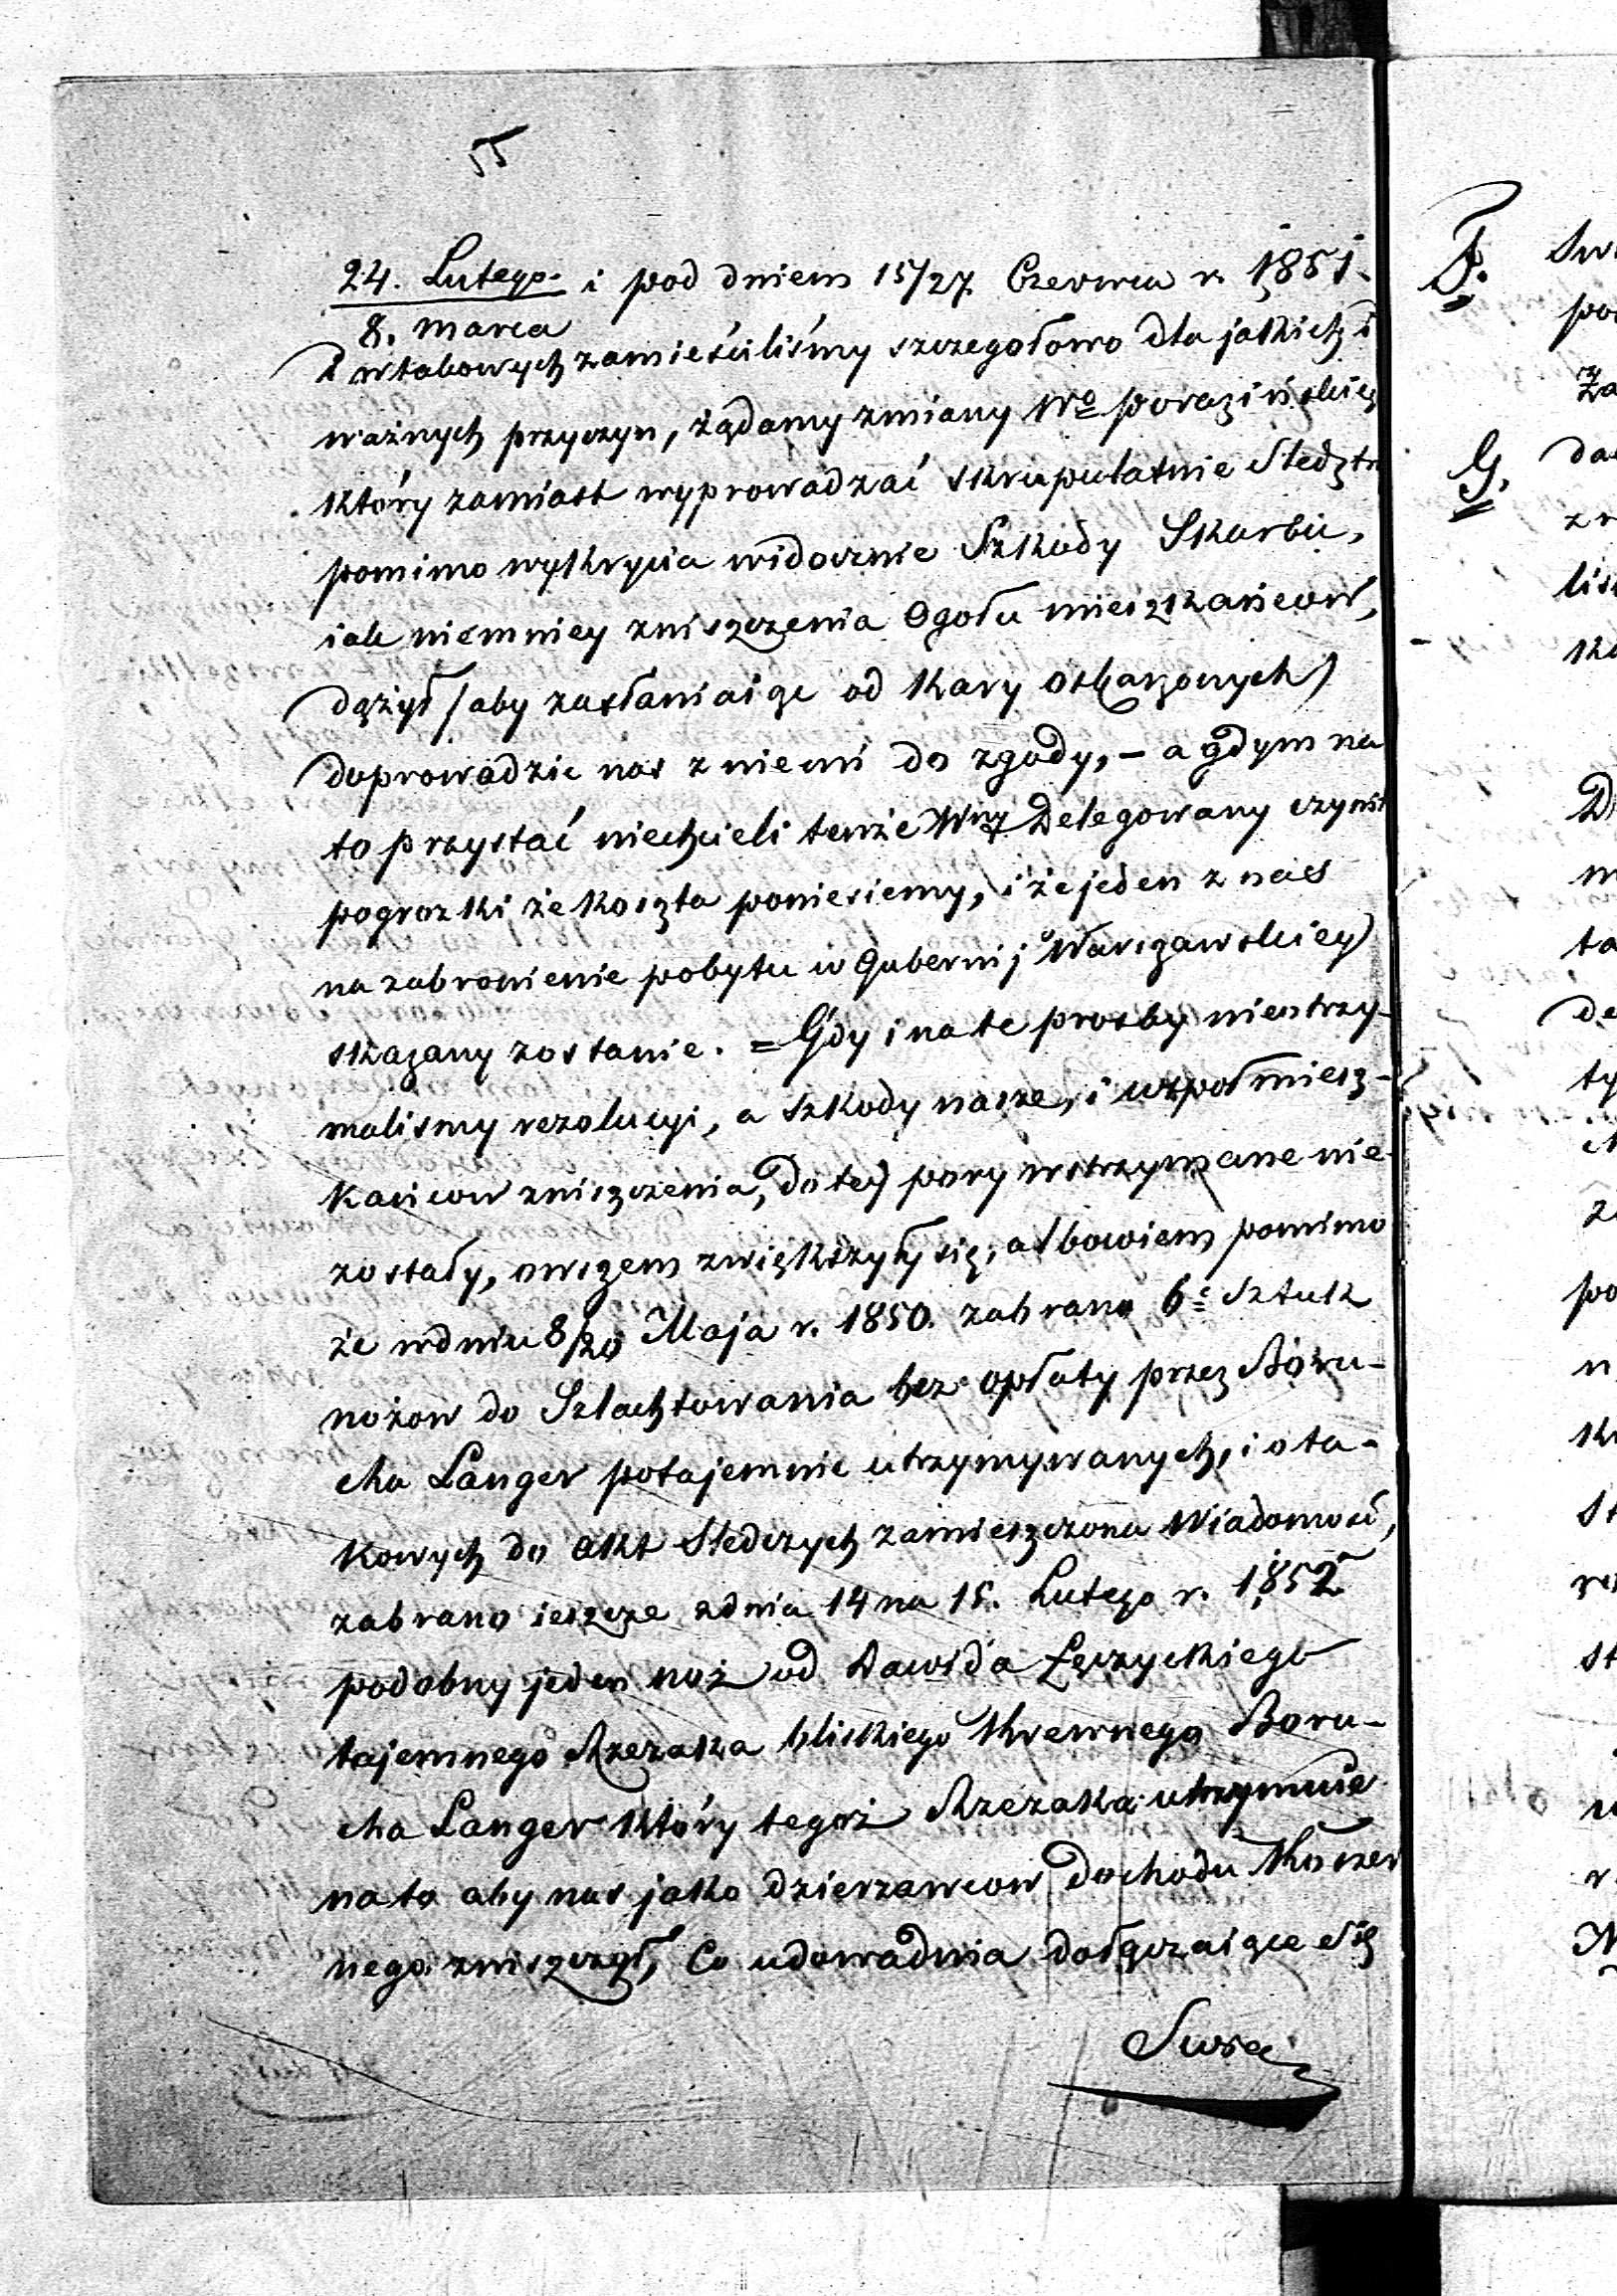 24. Lutego i pod dniem 15/27 Czerwca r. 1851.
8. Marca
i w takowych zamieściliśmy szczegołowo dla jakich i
ważnych przyczyn, żądamy zmiany Wo
który zamiast wyprowadzać skrupulatnie
pomimo wykrycia widocznie Szkody Skarbu,
iak niemniey zniszczenia Ogołu mieszkańcow,
dążył /aby zasłaniaiąc od kary oskarżonych/
doprowadzić nas z niemi do zgody, – a gdym na
to przystać niechcieli tenże Wny Delegowany czynił
pogrozki że koszta poniesiemy, i że jeden z nas
na zabronienie pobytu w Gubernij Warszawskiey
skazany zostanie. = Gdy i na te prozby nieotrzy-
malismy rezolucyi, a szkody nasze, i wspołmiesz-
kańcow zniszczenia, do tey pory wstrzymane nie
zostały, owszem zwiększyły się, albowiem pomimo
że w dniu 8/20 Maja r. 1850. zabrano 6. Sztuk
nożow do Szlachtowania bez opłaty przez Boru-
cha Langer potajemnie utrzymywanych, i o ta-
kowych do akt Sledczych zamieszczona Wiadomość,
zabrano ieszcze z dnia 14 na 15. Lutego r. 1852
podobny jeden noż od Dawida Łęczyckiego
tajemnego Rzezaka bliskiego Krewnego Boru-
cha Langer który tegoż Rzezaka utrzymuie
na to aby nas jako dzierzawcow dochodu Koszer
nego zniszczył, Co udowadnia dołączaiące się